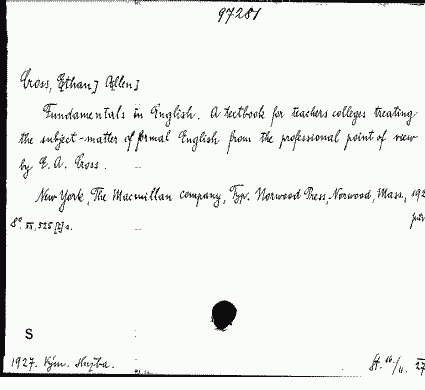 97281
Cross, Ethan] Allen]
Fundamentals in English. A textbook for teachers colleges treating
the subject-matter of formal English from the professional point of view
by E. A. Cross.
New York, The Macmillan company, Typ. Norwood Press, Norwood, Mass., 192
8°. XX, 526 [2] s.
S
1927.